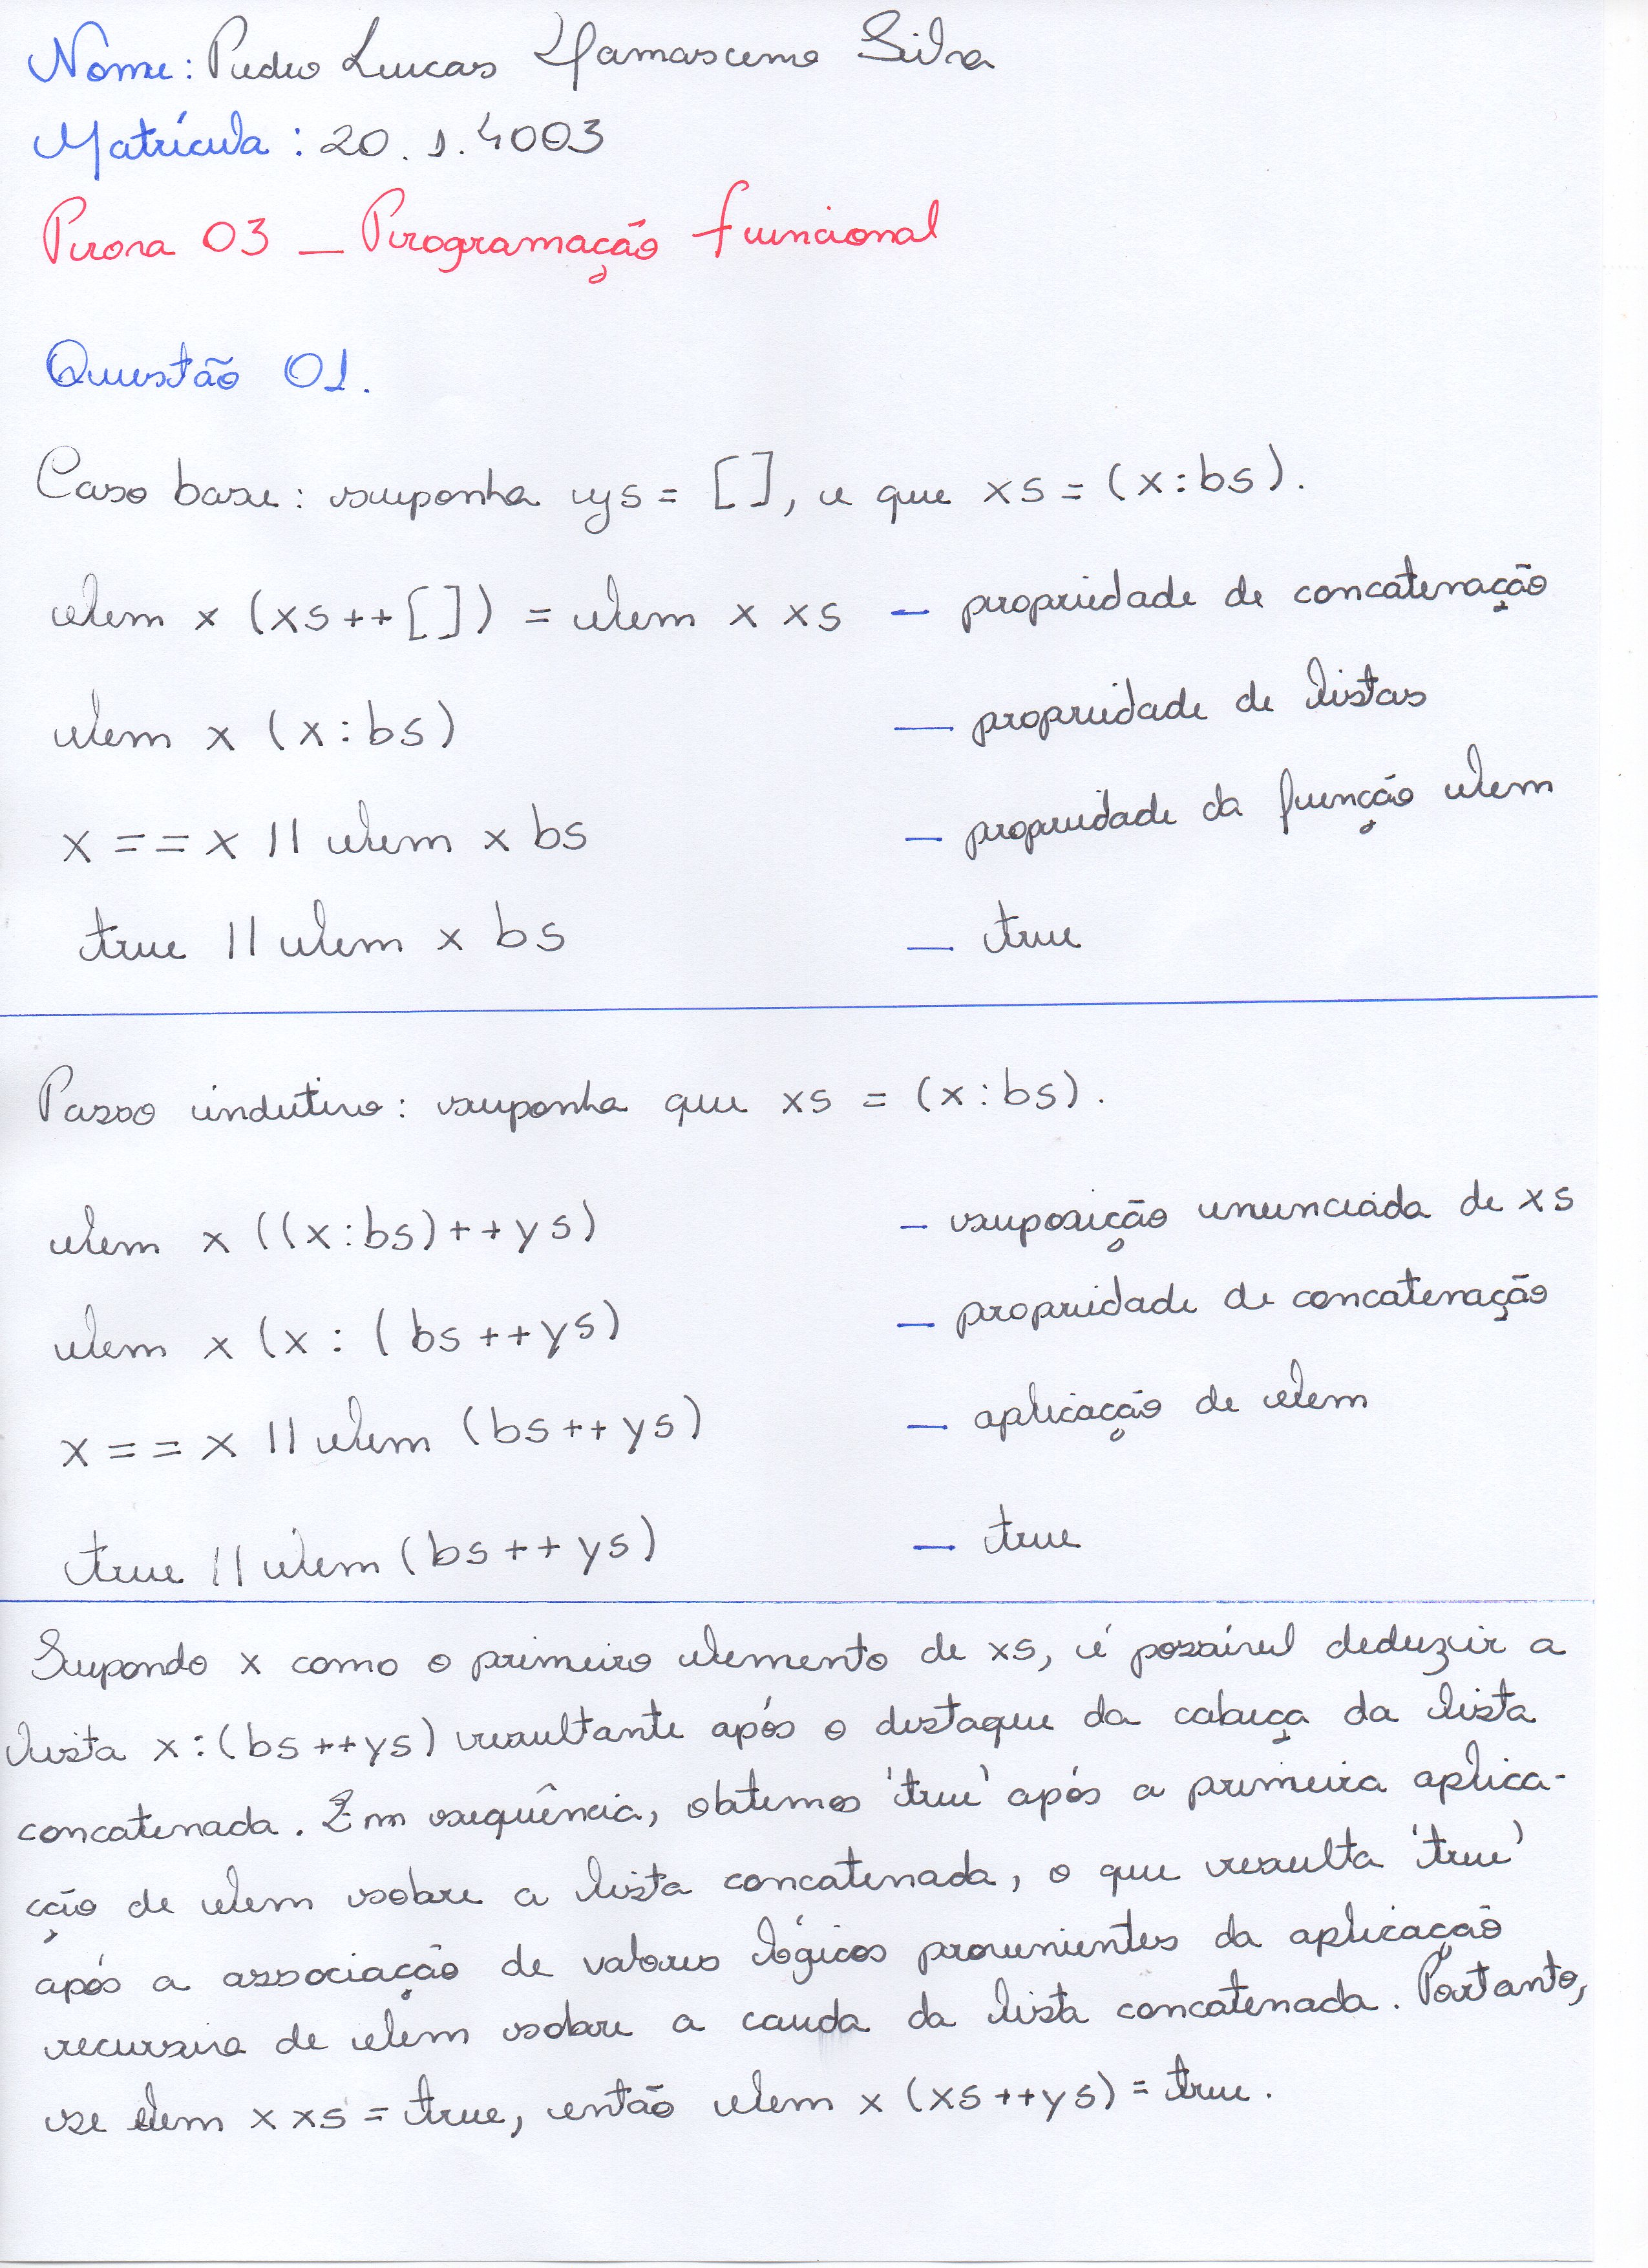 Nome: Pedro Lucas Damasceno Silva
Matrícula: 20.1.4003
Prova 03 - Programação funcional
Questão 01.
Caso base: suponha ys = [], e que xs = (x:bs).
elem x (xs++[]) = elem x xs - propriedade de concatenação
elem x (x:bs) - propriedade de listas
x == x || elem x bs - propriedade da função elem
true || elem x bs - true
Passo indutivo: suponha que xs = (x:bs).
elem x ((x:bs)++ys) - suposição enunciada de xs
elem x (x : (bs++ys) - propriedade de concatenação
x == x || elem (bs++ys) - aplicação de elem
true || elem (bs++ys) - true
Supondo x como o primeiro elemento de xs, é possível deduzir a
lista x:(bs++ys) resultante após o destaque da cabeça da lista
concatenada. Em sequência, obtemos 'true' após a primeira aplica-
ção de elem sobre a lista concatenada, o que resulta 'true'
após a associação de valores lógicos provenientes da aplicação
recursiva de elem sobre a cauda da lista concatenada. Portanto,
se elem x xs = true, então elem x (xs++ys) = true.